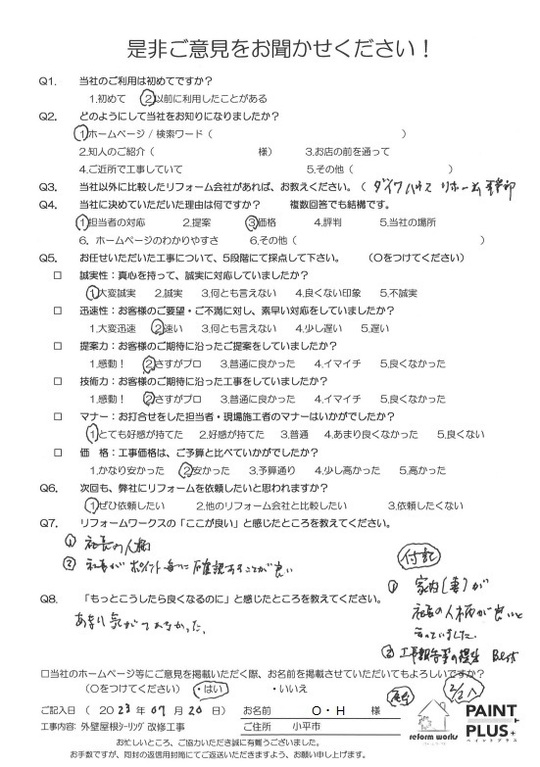 是非ご意見をお聞かせください！
Q1. 当社のご利用は初めてですか？
1.初めて ②以前に利用したことがある
Q2. どのようにして当社をお知りになりましたか？
①ホームページ / 検索ワード（ ）
2.知人のご紹介（ 様） 3.お店の前を通って
4.ご近所で工事していて 5.その他（ ）
Q3. 当社以外に比較したリフォーム会社があれば、お教えください。（ダイワハウス リホーム
Q4. 当社に決めていただいた理由は何ですか？ 複数回答でも結構です。
①担当者の対応 2.提案 ③価格 4.評判 5.当社の場所
6. ホームページのわかりやすさ 6.その他（ ）
Q5. お任せいただいた工事について、5段階にて採点して下さい。 （○をつけてください）
□ 誠実性：真心を持って、誠実に対応していましたか？
①大変誠実 2.誠実 3.何とも言えない 4.良くない印象 5.不誠実
□ 迅速性：お客様のご要望・ご不満に対し、素早い対応をしていましたか？
1.大変迅速 ②速い 3.何とも言えない 4.少し遅い 5.遅い
□ 提案力：お客様のご期待に沿ったご提案をしていましたか？
1.感動！ ②さすがプロ 3.普通に良かった 4.イマイチ 5.良くなかった
□ 技術力：お客様のご期待に沿った工事をしていましたか？
1.感動！ ②さすがプロ 3.普通に良かった 4.イマイチ 5.良くなかった
□ マナー：お打合せをした担当者・現場施工者のマナーはいかがでしたか？
①とても好感が持てた 2.好感が持てた 3.普通 4.あまり良くなかった 5.良くない
□ 価 格：工事価格は、ご予算と比べていかがでしたか？
1.かなり安かった ②安かった 3.予算通り 4.少し高かった 5.高かった
Q6. 次回も、弊社にリフォームを依頼したいと思われますか？
①ぜひ依頼したい 2.他のリフォーム会社と比較したい 3.依頼したくない
Q7. リフォームワークスの「ここが良い」と感じたところを教えてください。
① 社長の人柄
② 社長がポイント毎に確認することが良い
付記
① 家内(妻)が
社長の人柄が良いと
言っていました。
② 工事報告書の提出 Best
Q8. 「もっとこうしたら良くなるのに」と感じたところを教えてください。
あまり気がつかなかった。
□当社のホームページ等にご意見を掲載いただく際、お名前を掲載させていただいてもよろしいですか？
（○をつけてください） ・はい ・いいえ
ご記入日 （ 2023 年 07 月 20 日） お名前 O・H 様
工事内容: 外壁屋根ｼｰﾘﾝｸﾞ 改修工事 ご住所 小平市
reform works
PAINT
PLUS+
ペイントプラス
お忙しいところ、ご協力いただき誠に有難うございました。
お手数ですが、同封の返信用封筒にてご返送いただきますよう、お願い申し上げます。